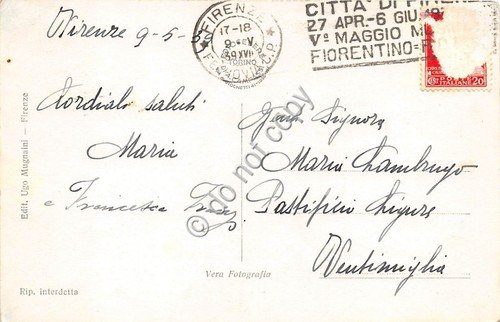 Firenze 9-5-39
FIRENZE
17-18
9 V
39 XVII
FERROVIA C.P.
CITTÀ DI FIRENZE
27 APR.-6 GIU.
Vº MAGGIO M
FIORENTINO=
POSTE
ITALIANE 20
Cordiali saluti
Maria
e Francesca
Gent. Signora
Maria Lambrugo
Pastificio Ligure
Ventimiglia
Edit. Ugo Mugnaini - Firenze
Vera Fotografia
Rip. interdetta
©do not copy